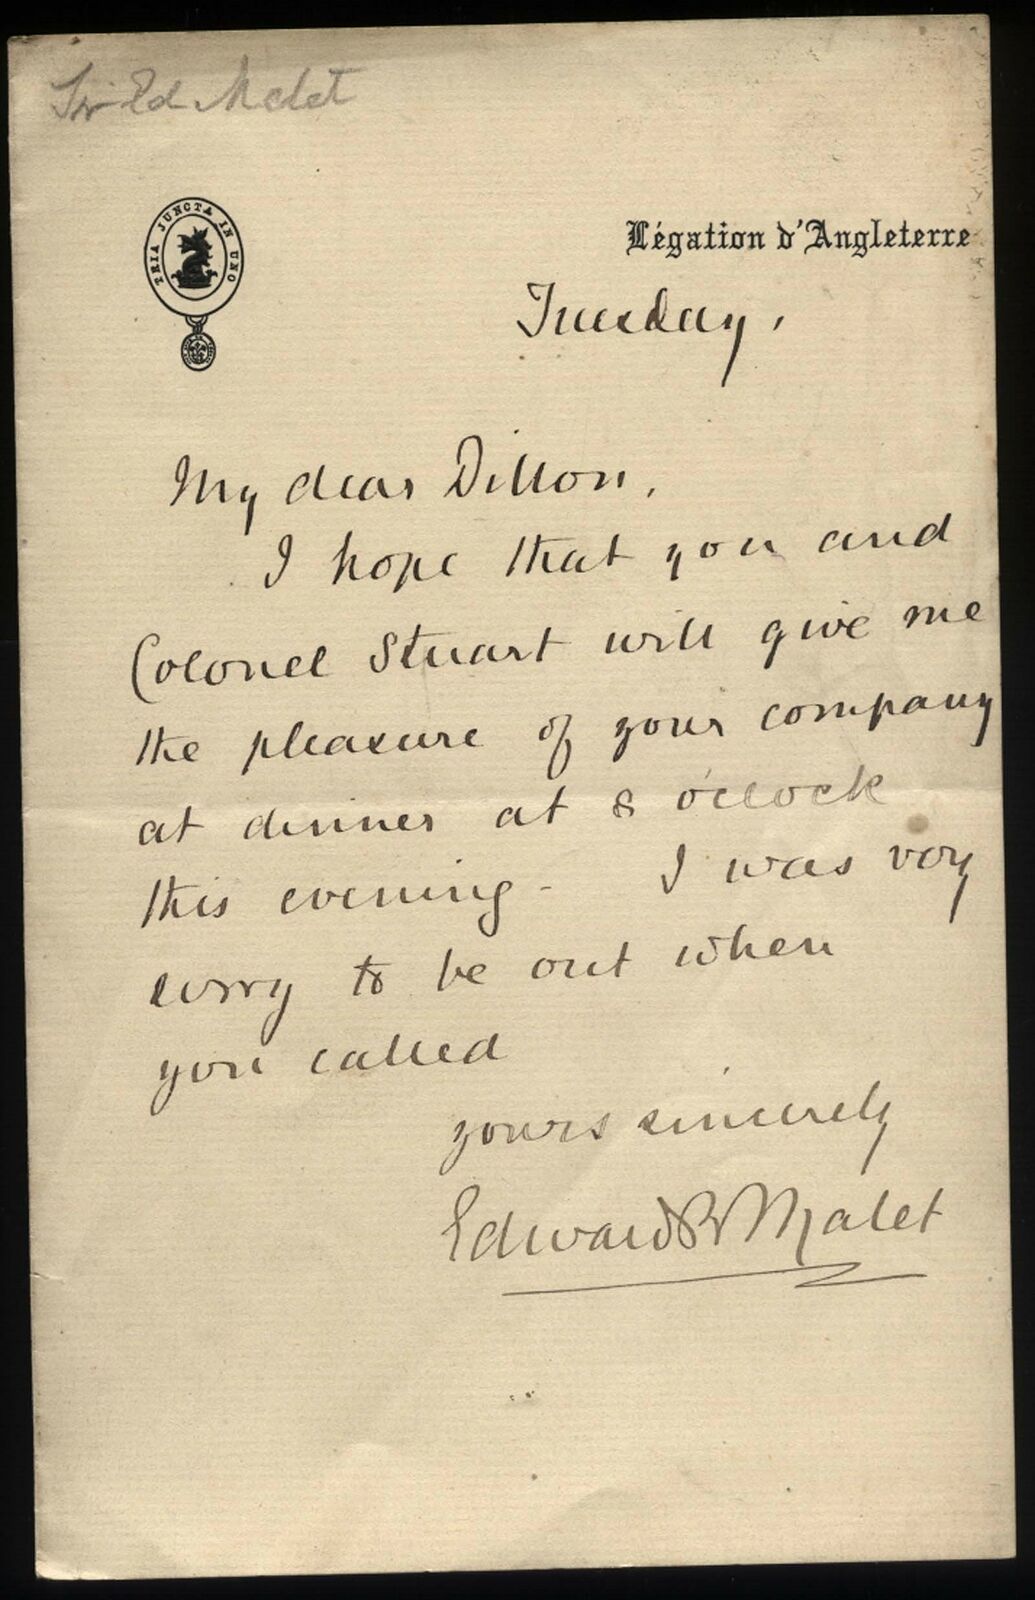 Sir Ed Malet
TRIA JUNCTA IN UNO
Légation d'Angleterre
Tuesday,
My dear Dillon,
I hope that you and
Colonel Stuart will give me
the pleasure of your company
at dinner at 8 o'clock
this evening - I was very
sorry to be out when
you called
yours sincerely
Edward B Malet